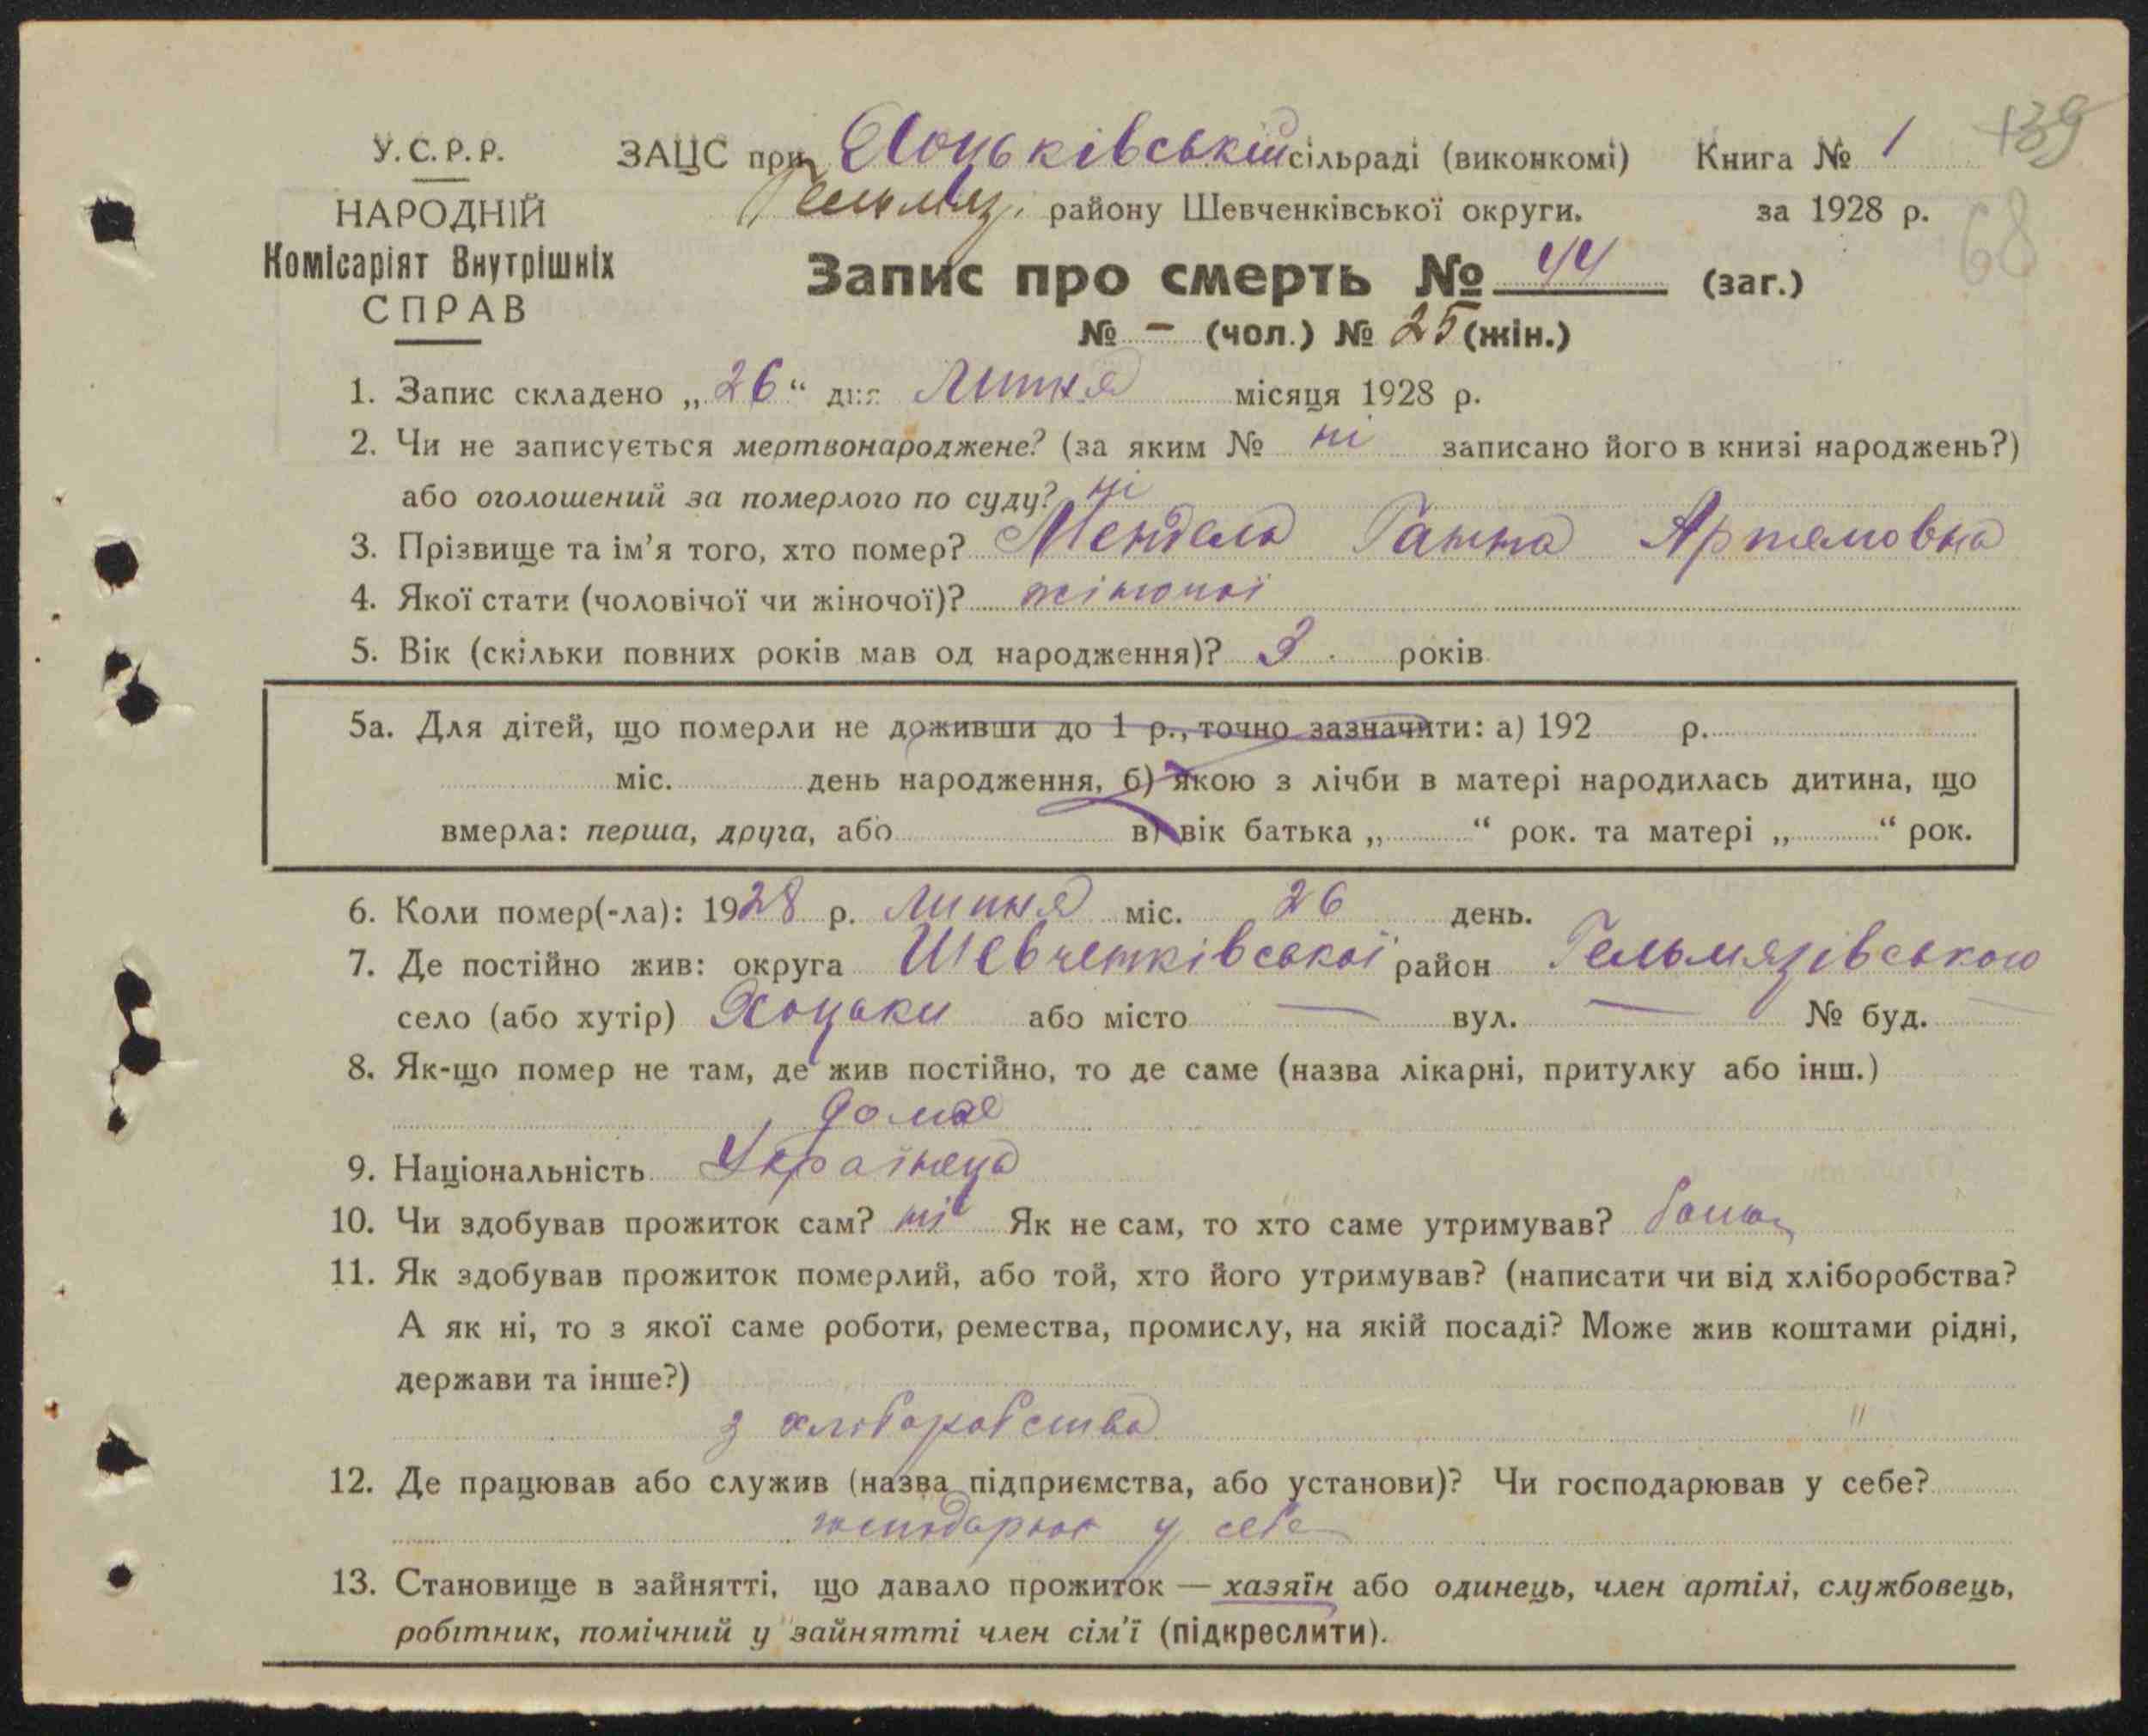 У.С.Р.Р.
НАРОДНІЙ
Комісаріят Внутрішніх
СПРАВ
ЗАЦС при Хоцьківській сільраді (виконкомі) Книга № 1
139
Гельмяз. району Шевченківської округи. за 1928 р.
68
Запис про смерть № 44 (заг.)
№ – (чол.) № 25 (жін.)
1. Запис складено „26“ дня Липня місяця 1928 р.
2. Чи не записується мертвонароджене? (за яким № ні записано його в книзі народжень?)
або оголошений за померлого по суду? ні
3. Прізвище та ім'я того, хто помер? Мендела Ганна Артемовна
4. Якої стати (чоловічої чи жіночої)? жіночої
5. Вік (скільки повних років мав од народження)? 3 років
5а. Для дітей, що померли не доживши до 1 р., точно зазначити: а) 192 р.
міс. день народження, б) якою з лічби в матері народилась дитина, що
вмерла: перша, друга, або в) вік батька „ “ рок. та матері „ “ рок.
6. Коли помер(-ла): 1928 р. Липня міс. 26 день.
7. Де постійно жив: округа Шевченківської район Гельмязівського
село (або хутір) Хоцьки або місто — вул. — № буд.
8. Як-що помер не там, де жив постійно, то де саме (назва лікарні, притулку або інш.)
дома
9. Національність Українець
10. Чи здобував прожиток сам? ні Як не сам, то хто саме утримував?
11. Як здобував прожиток померлий, або той, хто його утримував? (написати чи від хліборобства?
А як ні, то з якої саме роботи, ремества, промислу, на якій посаді? Може жив коштами рідні,
держави та інше?)
з хліборобства
12. Де працював або служив (назва підприємства, або установи)? Чи господарював у себе?
у себе
13. Становище в зайнятті, що давало прожиток — хазяїн або одинець, член артілі, службовець,
робітник, помічний у зайнятті член сім'ї (підкреслити).